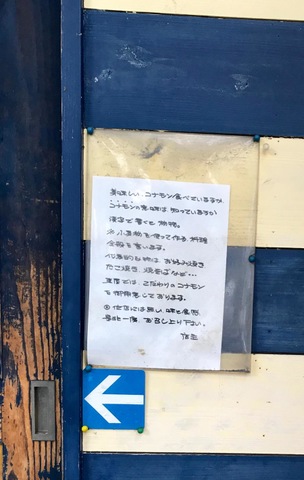 美味しい コナモン食べていますか
コナモンの意味は 知っていますか
漢字で書くと 粉物。
小麦粉を使って作る 料理
全般を言います。
代表的な物は お好み焼き
たこ焼き 焼きそばなど…
当店では こだわりのコナモン
を御用意しております。
他店には無い 味と食感
是非一度 お召し上り下さい。
店主